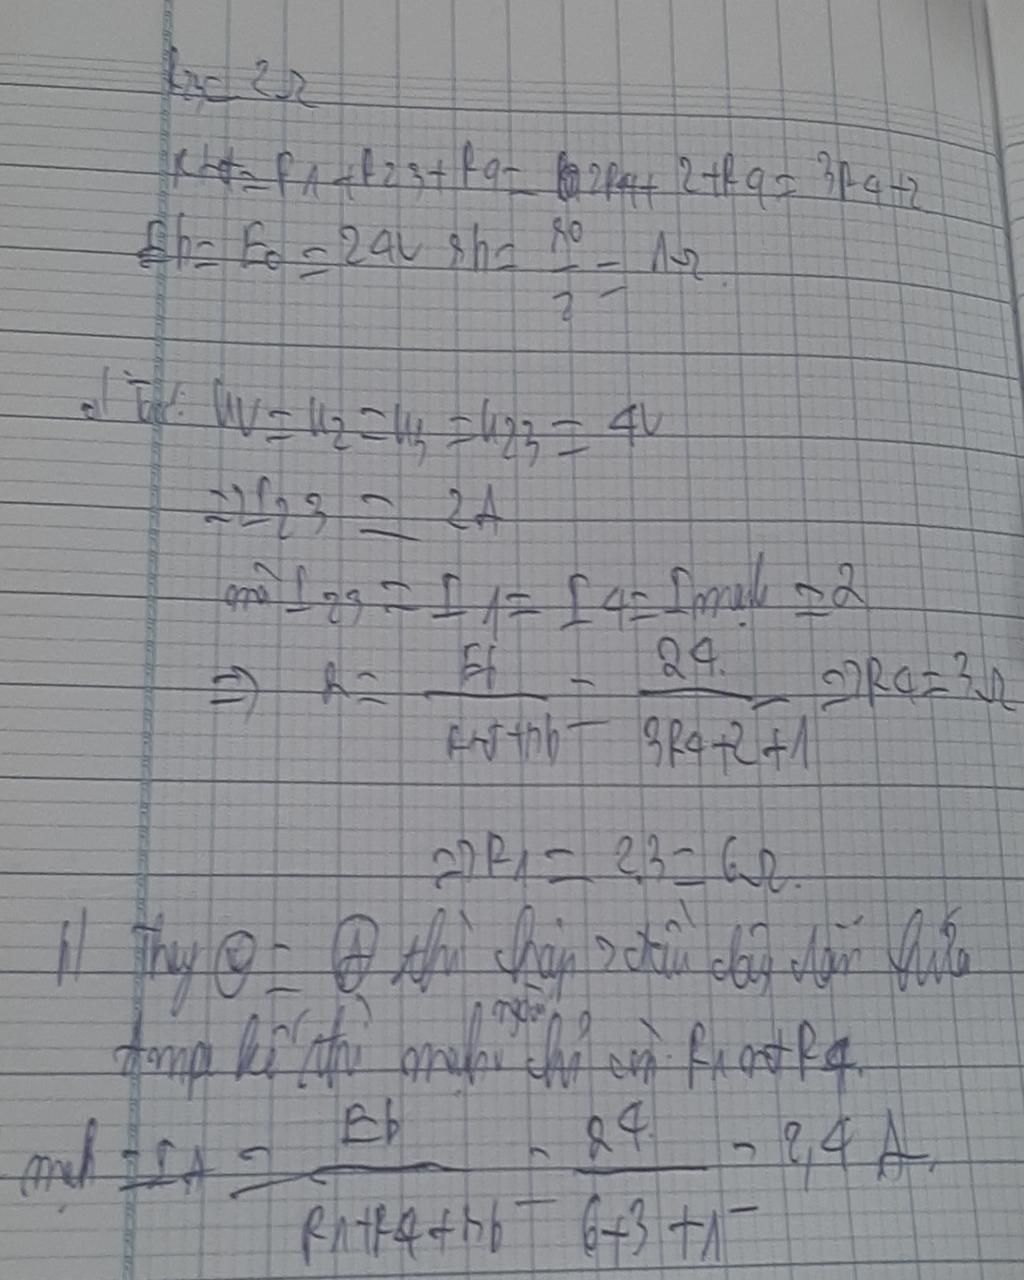 R23 = 2Ω
Rtđ = R1 + R23 + R4 = 2R4 + 2 + R4 = 3R4 + 2
Eb = E0 = 24V rb = r0/2 = 1Ω
a/ Ta có: UV = U2 = U3 = U23 = 4V
=> I23 = 2A
mà I23 = I1 = I4 = Imạch = 2
=> 2 = Eb/(Rtđ + rb) = 24/(3R4 + 2 + 1) => R4 = 3Ω
=> R1 = 2.3 = 6Ω.
b/ Thay V = A thì chập 2 đầu dây dẫn giữa
ampe kế thì mạch ngoài chỉ còn R1 nt R4.
mạch = IA = Eb/(R1 + R4 + rb) = 24/(6 + 3 + 1) = 2,4 A.